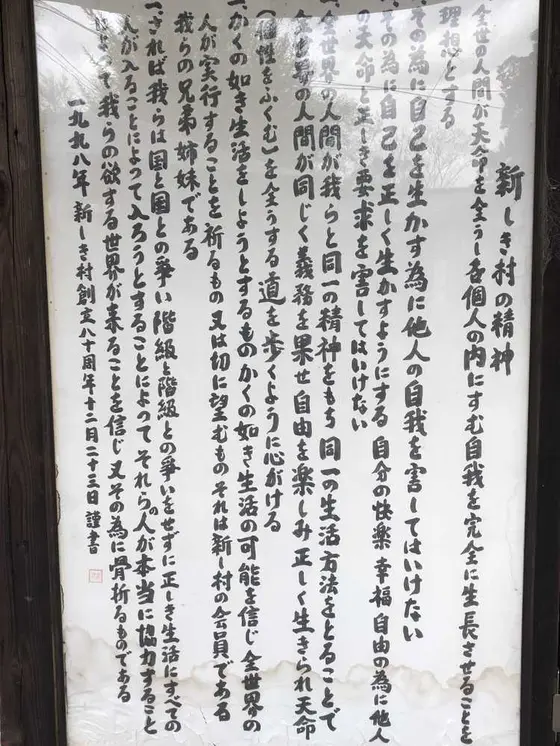 新しき村の精神
一、全世の人間が天命を全うし各個人の内にすむ自我を完全に生長させることを
理想とする
一、その為に自己を生かす為に他人の自我を害してはいけない
一、その為に自己を正しく生かすようにする 自分の快楽 幸福 自由の為に他人
の天命と正しき要求を害してはいけない
一、全世界の人間が我らと同一の精神をもち 同一の生活方法をとることで
全世界の人間が同じく義務を果せ 自由を楽しみ 正しく生きられ 天命
(個性をふくむ)を全うする 道を歩くように心がける
一、かくの如き生活をしようとするもの かくの如き生活の可能を信じ 全世界の
人が実行することを祈るもの 又は切に望むもの それは新しき村の会員である
我らの兄弟姉妹である
一、されば我らは国と国との争い 階級と階級との争いをせずに 正しき生活にすべての
人が入ることによって 入ろうとすることによって それらの人が本当に協力すること
によって 我らの欲する世界が来ることを信じ 又その為に骨折るものである
一九九八年 新しき村創立八十周年 十二月二十三日 謹書